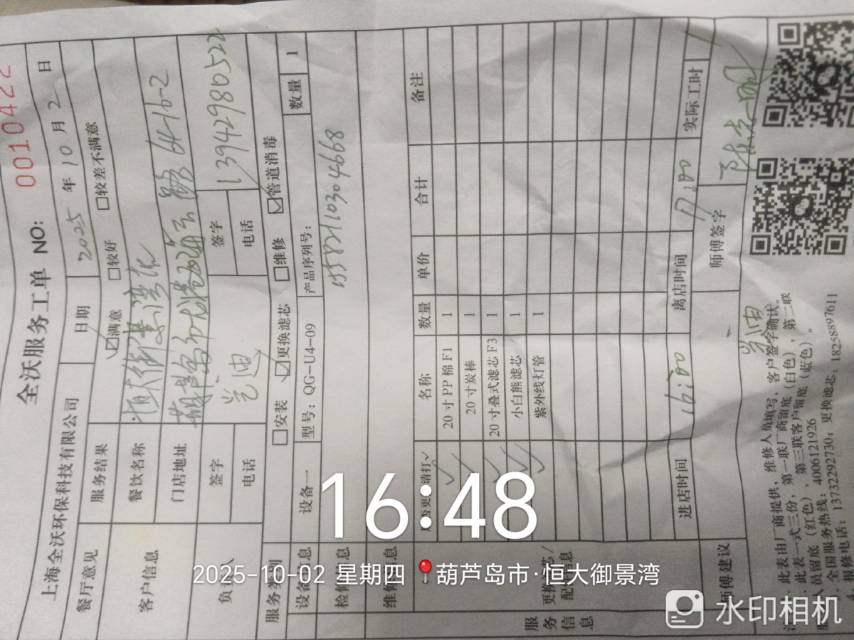 全沃服务工单 NO: 0010422
上海全沃环保科技有限公司 日期 2025 年 10 月 2 日
餐厅意见 服务结果 ☑满意 □较好 □较差不满意
客户信息 餐饮名称 恒大御景湾店
门店地址 葫芦岛 路64-16-2
签字 兰迪 签字
电话 电话 13942980522
□安装 ☑更换滤芯 □维修 ☑管道消毒
设备一 型号: QG-U4-09 产品序列号: 数量 1
名称 数量 单价 合计 备注
20寸PP棉F1 1
20寸炭棒 1
20寸叠式滤芯F3 1
小白熊滤芯 1
紫外线灯管 1
服务信息
进店时间 16:00 离店时间 17:00 实际工时
师傅建议 师傅签字
兰迪
此表由厂商提供,维修人员填写,客户签字确认。
此表一式三份,第一联厂商留底(白色),第二联
员留底(红色),第三联客户留底(蓝色)。
全国服务热线:4006121926
报修电话:13732292730;更换滤芯:18258897611
16:48
2025-10-02 星期四 葫芦岛市·恒大御景湾
水印相机